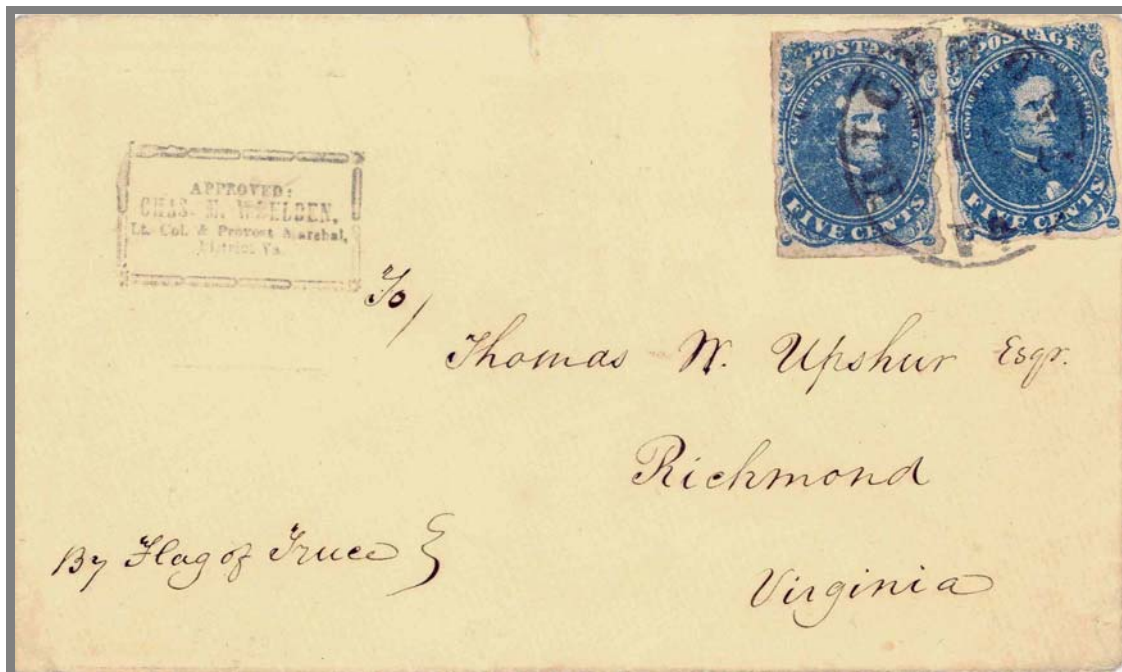 POSTAGE
CONFEDERATE STATES OF AMERICA
FIVE CENTS
POSTAGE
CONFEDERATE STATES OF AMERICA
FIVE CENTS
RICHMOND
VA.
APPROVED:
CHAS. M. WHELDEN,
Lt. Col. & Provost Marshal,
District Va.
To/
Thomas W. Upshur Esqr.
Richmond
By Flag of Truce
Virginia